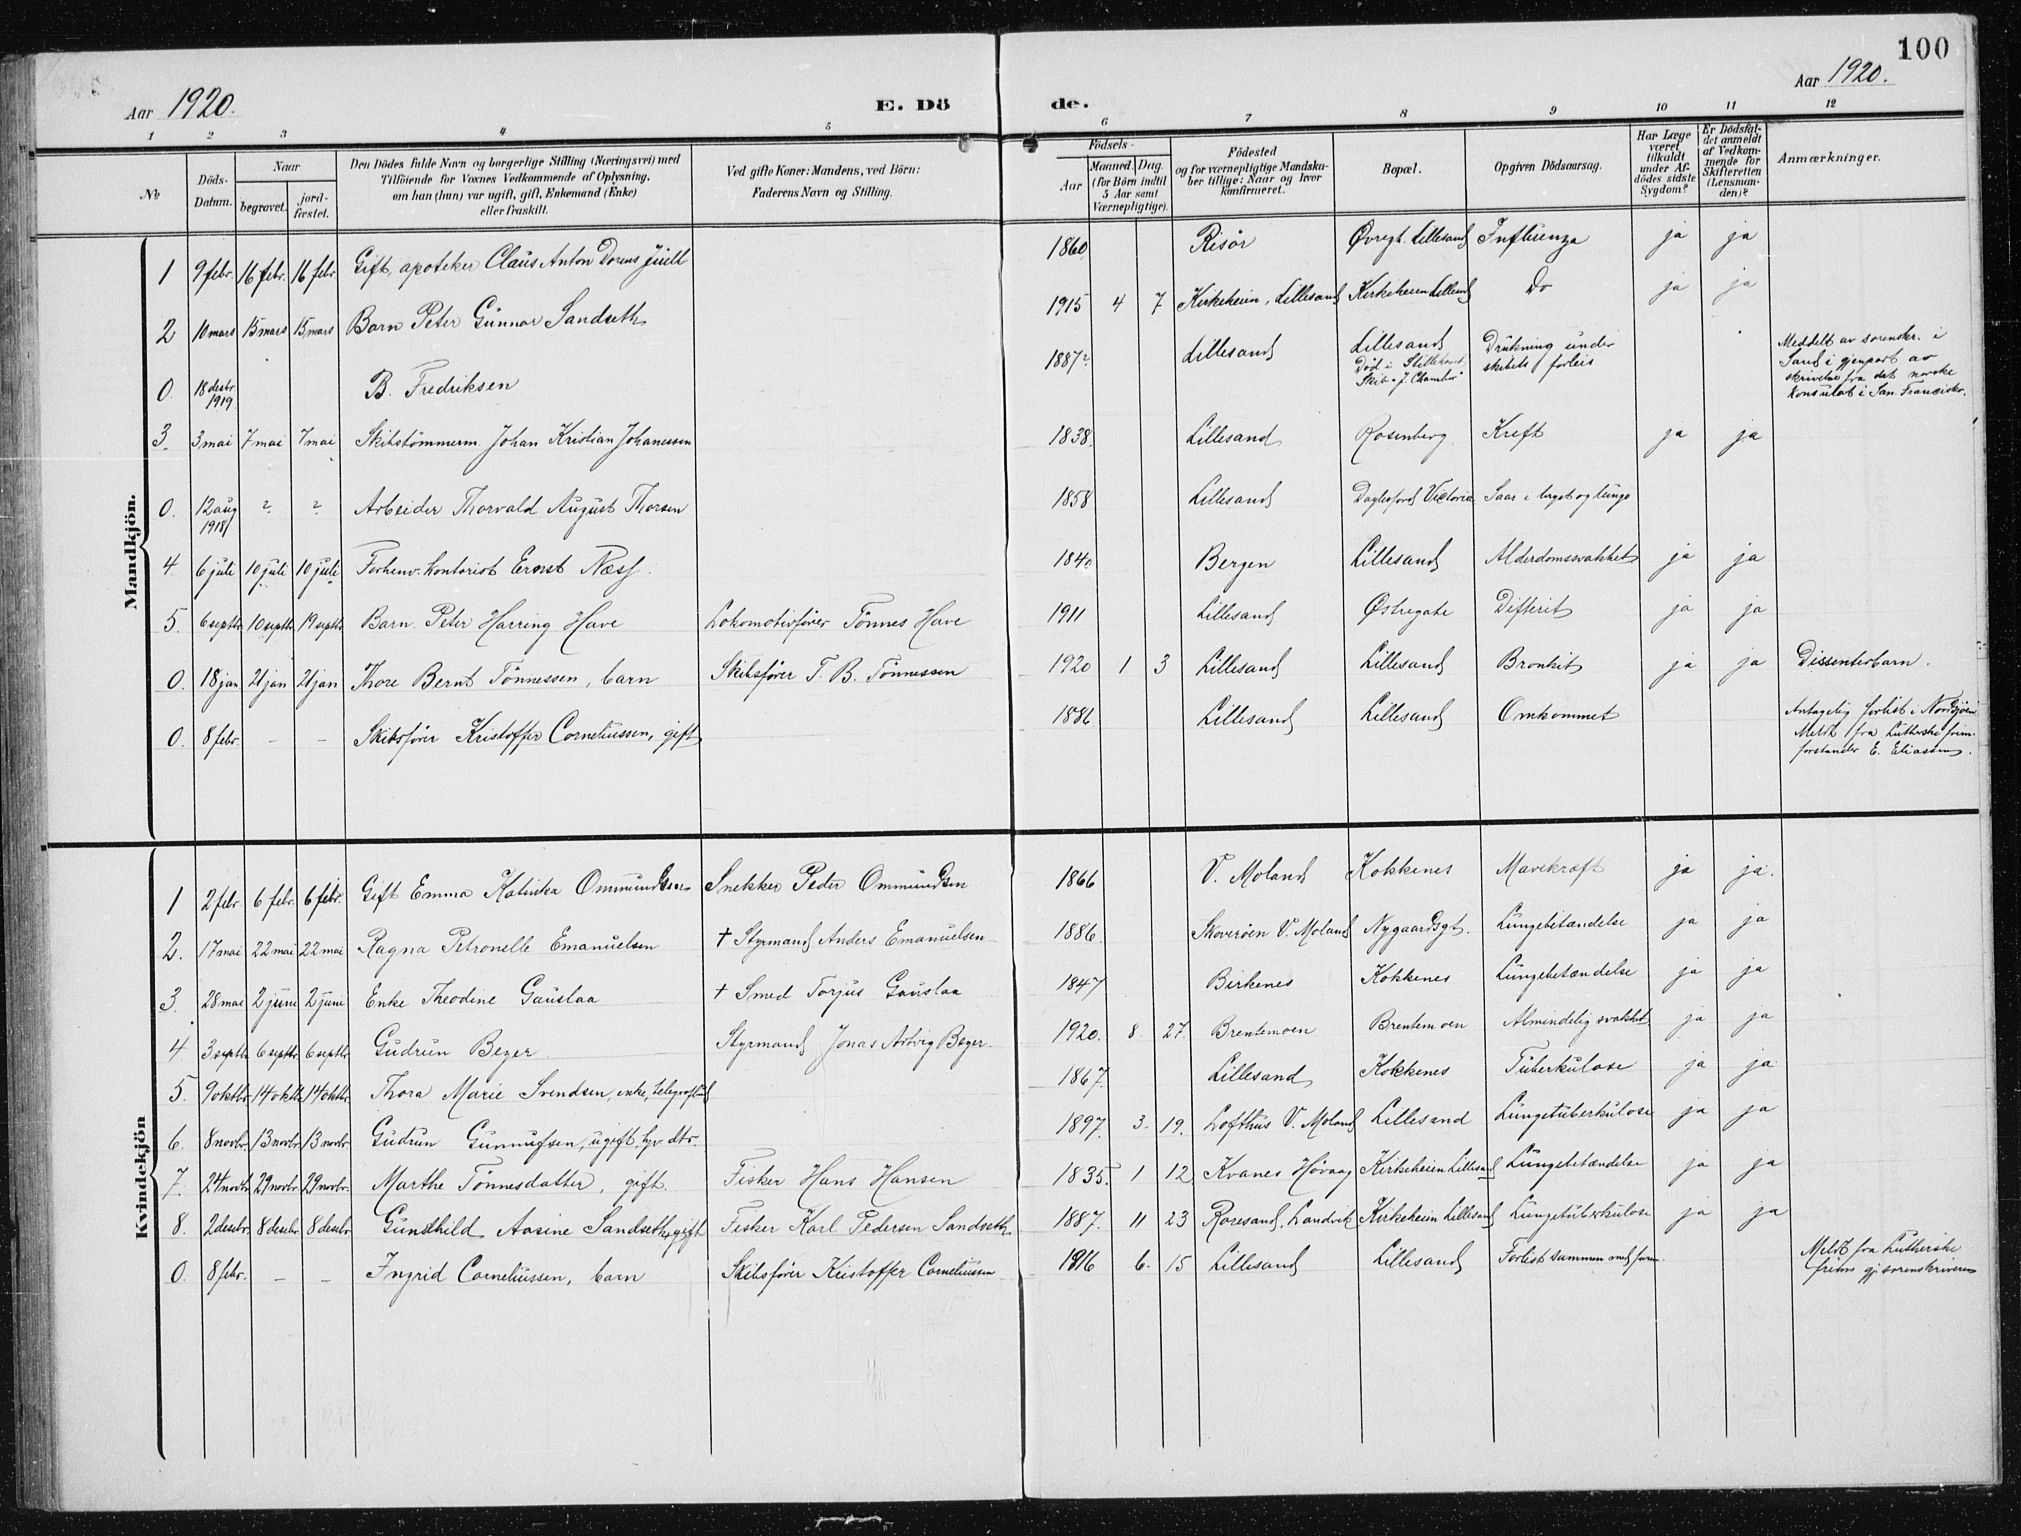 100
Aar 1920.
E. Dö
de.
Aar 1920.
1 2 3 4 5 6 7 8 9 10 11 12
No
Döds-Datum.
Naar
begravet.
jord-fæstet.
Den Dödes fulde Navn og borgerlige Stilling (Næringsvei) med
Tilföiende for Voxnes Vedkommende af Oplysning,
om han (hun) var ugift, gift, Enkemand (Enke)
eller fraskilt.
Ved gifte Koner: Mandens, ved Börn:
Faderens Navn og Stilling.
Födsels-
Aar
Maaned. Dag.
(for Börn indtil
5 Aar samt
Værnepligtige).
Födested
og for værnepligtige Mandska-
ber tillige: Naar og hvor
konfirmeret.
Bopæl.
Opgiven Dödsaarsag.
Har Læge
været
tilkaldt
under Af-
dödes sidste
Sygdom?
Er Dödsfal-
det anmeldt
af Vedkom-
mende for
Skifteretten
(Lensman-
den)?
Anmærkninger.
Mandkjön.
1 9 febr. 16 febr. 16 febr. Gift, apoteker Claus Anton Dorens Juell 1860 Risör Øvregt. Lillesand Influenza ja ja
2 10 mars 15 mars 15 mars Barn Peter Gunnar Sandseth 1915 4 7 Kirkeheien, Lillesand Kirkeheien Lillesand Do ja ja
0. 18 desbr 1919 B. Fredriksen 1887? Lillesand Lillesand Död i Skib "J. Drukning under skibets forlis Meddelt av sorenskr. i Sand i gjenpart av skrivelse fra det norske konsulat i San Francisko.
3. 3 mai 7 mai 7 mai Skibstömmerm. Johan Kristian Johanessen 1838. Lillesand Rosenberg. Kreft ja ja
0. 12 aug 1918 ? ? Arbeider Thorvald August Thorsen 1858 Lillesand Daylesford Victoria Saar i bryst og lunge
4 6 juli 10 juli 10 juli Forhenv. kontorist Ernst Næss. 1840 Bergen Lillesand Alderdomssvakhet ja ja
5. 6 septbr 10 septbr 19 septbr Barn. Peter Harring Have Lokomotivfører Tönnes Have 1911 Lillesand Østregate Difterit ja ja
0. 18 jan 21 jan 21 jan Thore Bernt Tönnessen, barn Skibsfører T. B. Tönnessen 1920 1 3 Lillesand Lillesand Bronkit ja ja Dissenterbarn.
0. 8 febr. – – Skibsfører Kristoffer Corneliussen, gift 1886 Lillesand Lillesand Omkommet Antagelig forlist i Nordsjöen. Meldt fra Lutherske frim. forstander E. Eliassen.
Kvindekjön
1 2 febr. 6 febr. 6 febr. Gift Emma Katinka Ommundsen Snekker Peder Ommundsen 1866 V. Moland Kokkenes Mavekræft ja ja.
2. 17 mai 22 mai 22 mai Ragna Petronelle Emanuelsen † Styrmand Anders Emanuelsen 1886. Skoverøen V. Moland Nygaardsgt. Lungebetændelse ja ja
3. 28 mai 2 juni 2 juni Enke Theodine Gauslaa † Smed Torjus Gauslaa 1847 Birkenes Kokkenes Lungebetændelse ja ja
4 3 septbr 6 septbr 6 septbr Gudrun Beyer Styrmand Jonas Artvig Beyer. 1920. 8. 27. Brentemoen Brentemoen Almindelig svakhet ja ja
5. 9 oktbr. 14 oktbr 14 oktbr. Thora Marie Svendsen, enke, 1867. Lillesand Kokkenes Tuberkulose ja ja
6. 8 novbr. 13 novbr. 13 novbr. Gudrun Gunnufsen, ugift, dtr. 1897. 3. 19. Lofthus V. Moland Lillesand Lungetuberkulose ja ja
7. 24 novbr. 29 novbr. 29 novbr. Marthe Tönnesdatter, gift. Fisker Hans Hansen 1835. 1 12 Kvanes Høvaag Kirkeheien Lillesand Lungebetændelse ja ja
8. 2 desbr. 8 desbr. 8 desbr. Gundhild Aasine Sandseth, gift Fisker Karl Pedersen Sandseth. 1887. 11 23 Roresand, Landvik Kirkeheien Lillesand Lungetuberkulose ja ja
0. 8 febr. – – Ingrid Corneliussen, barn Skibsfører Kristoffer Corneliussen 1916 6. 15 Lillesand Lillesand Forlist sammen med faren Meldt fra Lutherske frim. gj. sorenskriveren